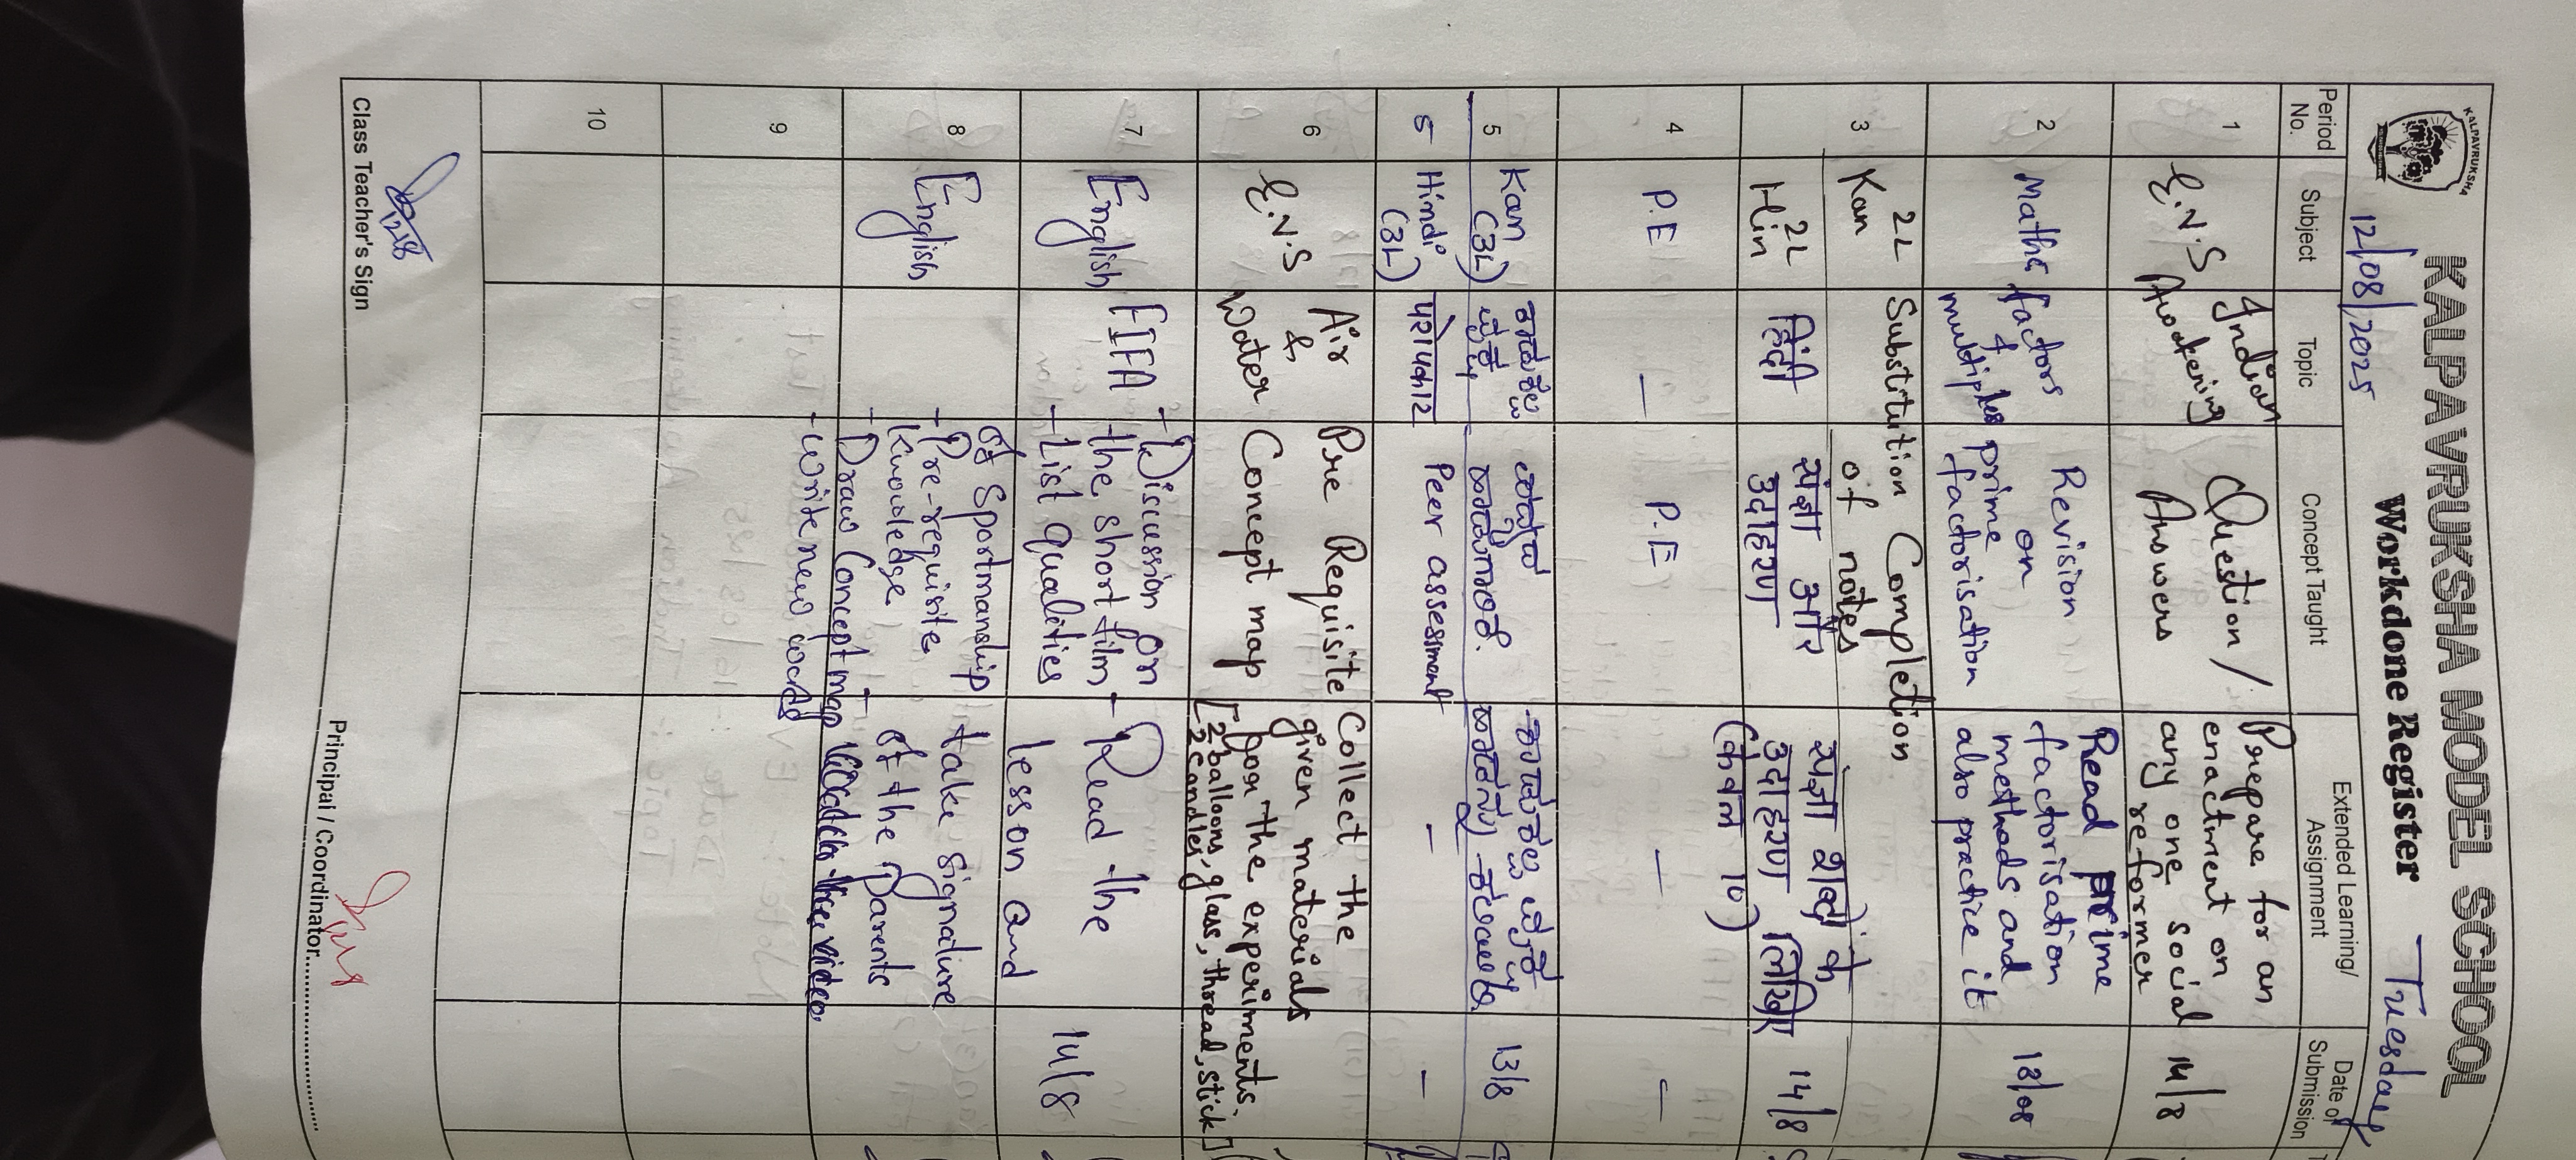 KALPAVRUKSHA
KALPAVRUKSHA MODEL SCHOOL
Workdone Register
12/08/2025
Tuesday
Period No.
Subject
Topic
Concept Taught
Extended Learning/ Assignment
Date of Submission
1
E.V.S
Indian
Awakening
Question /
Answers
Prepare for an
enactment on
any one social
reformer
14/8
2
Maths
factors
&
multiples
Revision
on
prime
factorisation
Read prime
factorisation
methods and
also practice it
18/08
3
2L
Kan
Substitution Completion
of notes
2L
Hin
हिंदी
संज्ञा और
उदाहरण
संज्ञा शब्दों के
उदाहरण लिखिए
(केवल 10)
14/8
4
P.E
—
P.E
—
—
5
Kan
(3L)
13/8
5
Hindi
(3L)
परोपकार
Peer assessment
—
—
6
E.V.S
Air
&
Water
Pre Requisite
Concept map
Collect the
given materials
for the experiments.
[2 balloons, glass, thread, stick]
2 candles
7
English
FIFA
- Discussion on
the short film
- List qualities
of Sportmanship
- Read the
lesson and
14/8
8
English
- Pre-requisite
knowledge
- Draw Concept map
- Write new words
take signature
of the Parents
9
10
Class Teacher's Sign
Principal / Coordinator